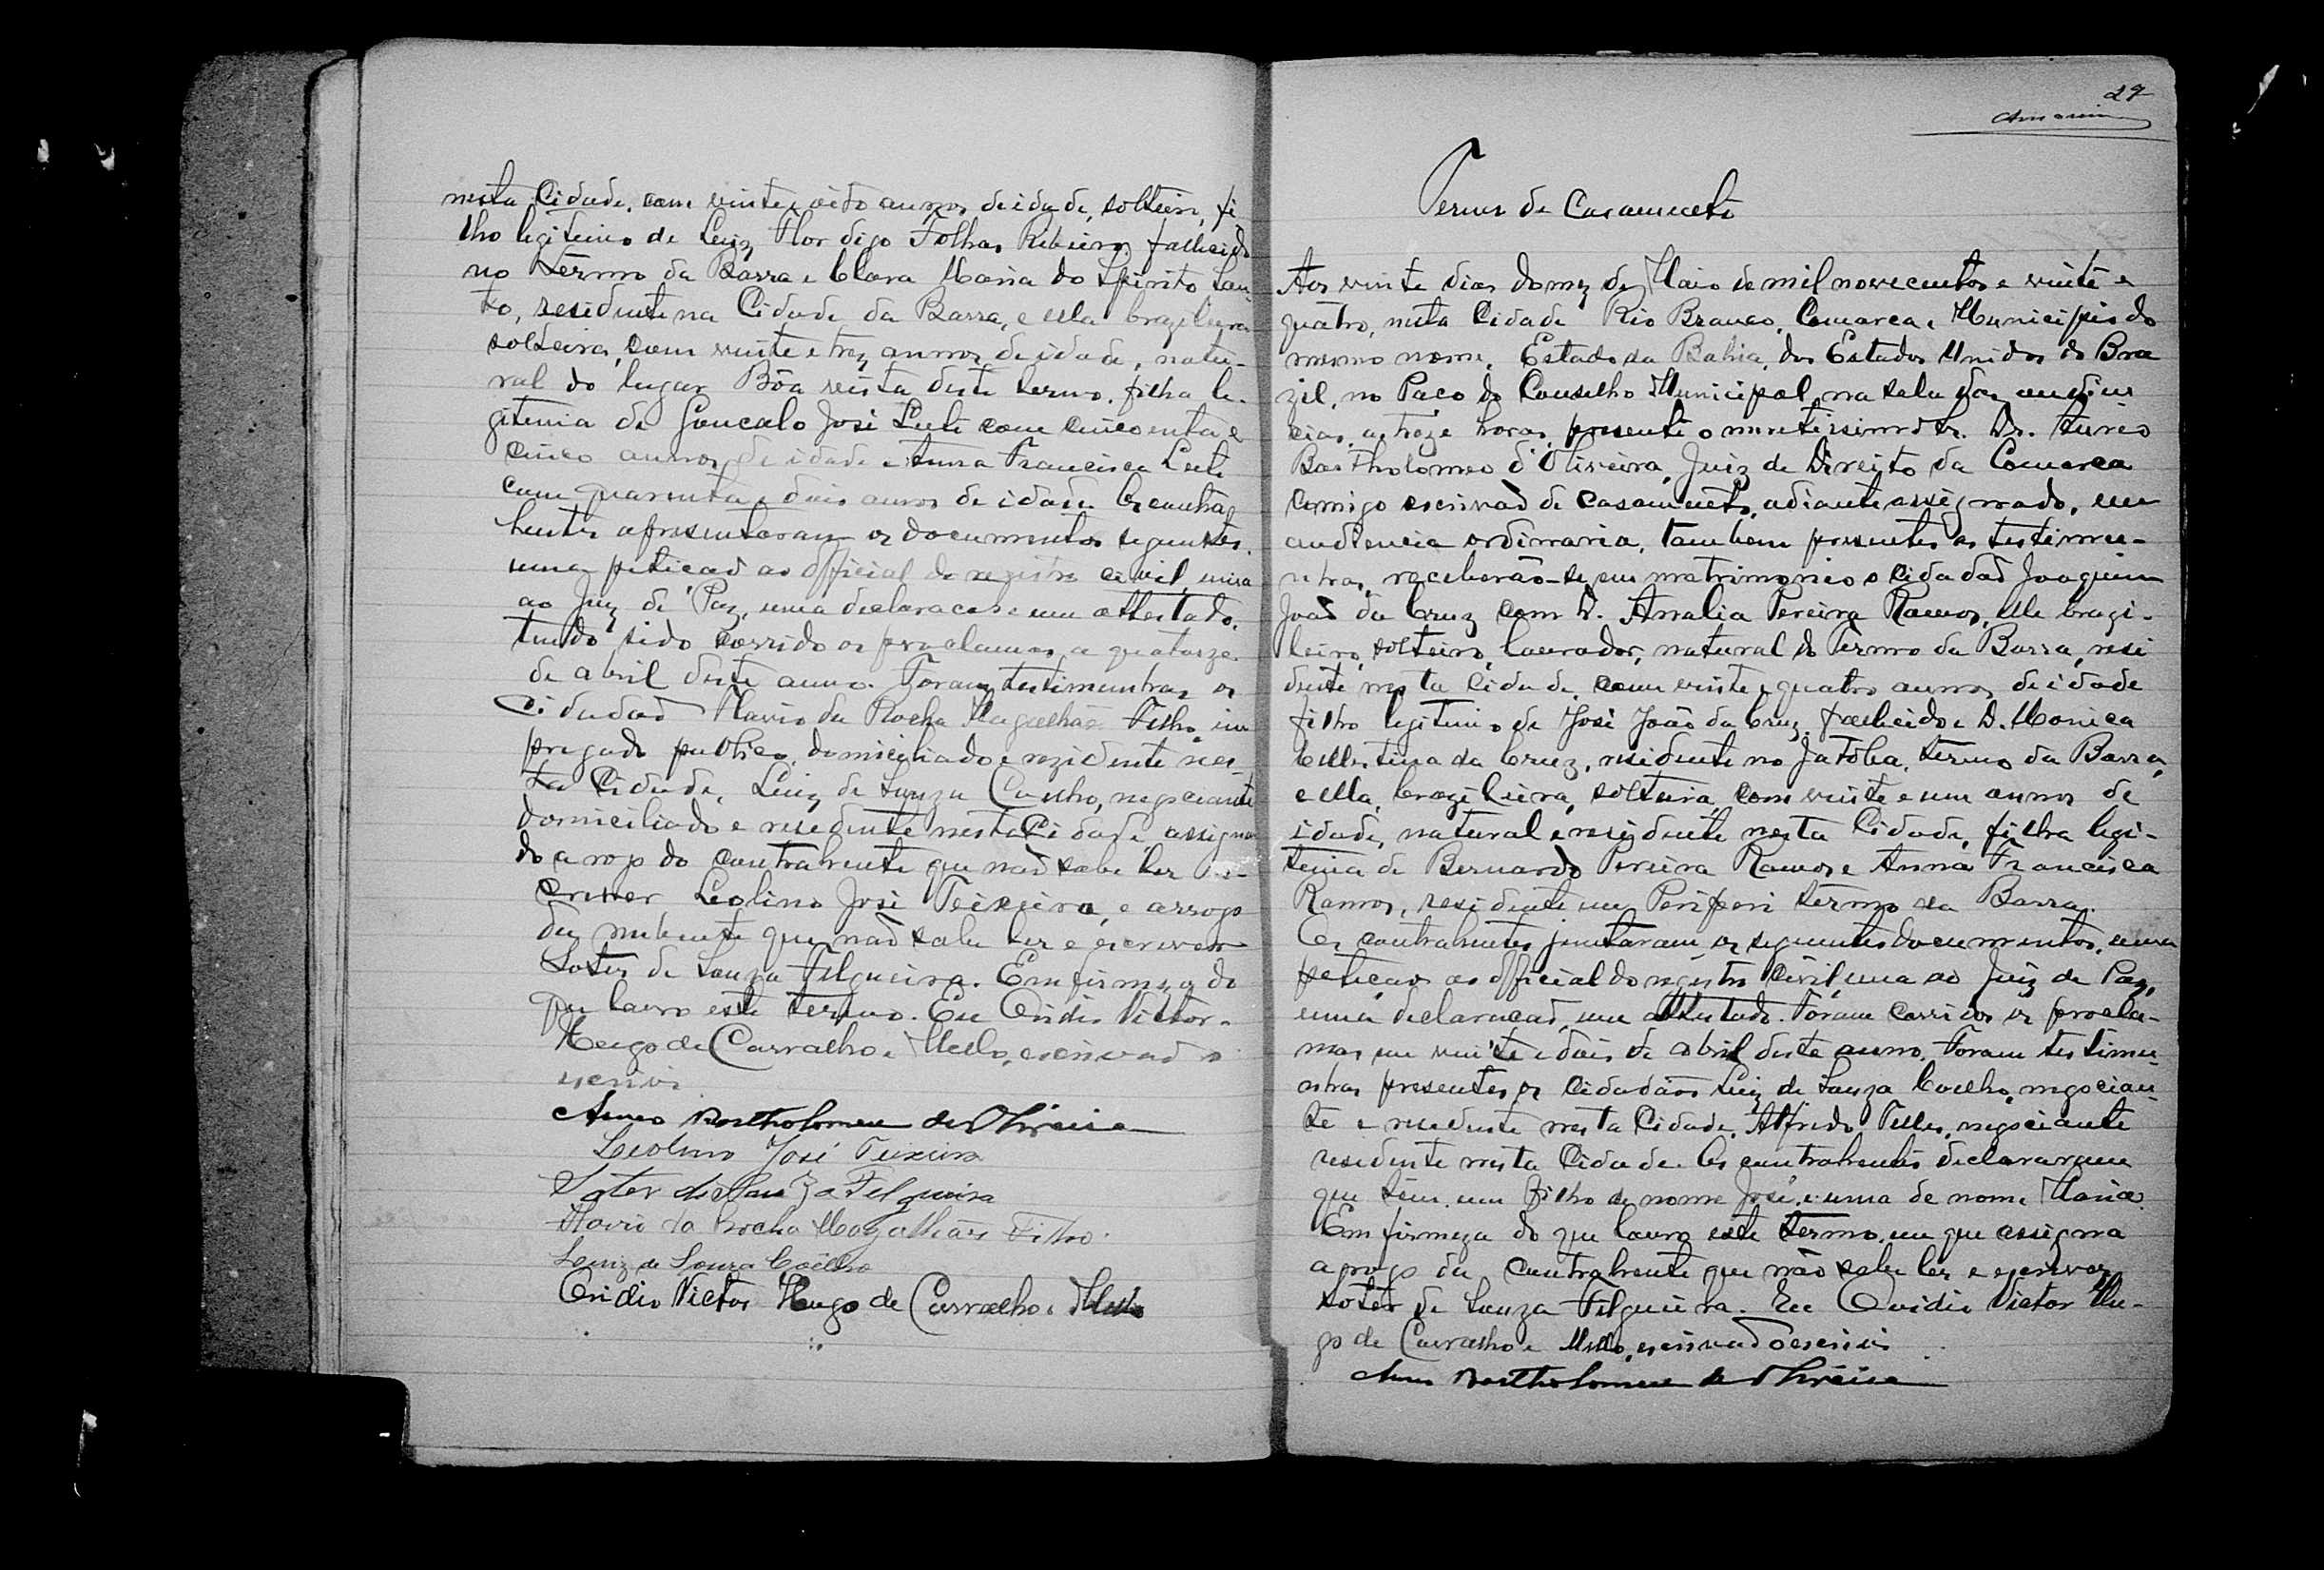 nesta Cidade, com vinte e oito annos de idade, solteiro, fi
lho legitimo de Luiz Flor digo Folhas Ribeiro, fallecido
no Termo da Barra e Clara Maria do Spirito San-
to, residente na Cidade da Barra, e ella brazileira
solteira, com vinte e trez annos de idade, natu-
ral do lugar Bôa vista deste termo, filha le-
gitima de Goncalo José Leite com cincoenta e
cinco annos de idade e Anna Francisca Leite
com quarenta e dois annos de idade. Os contra-
hentes apresentaram os documentos seguintes:
uma peticaõ ao official do registro civil, uma
ao Juiz de Paz, uma declaracaõ e um attestado,
tendo sido corrido os proclamas a quatorze
de abril deste anno. Foram testimunhas os
Cidadaõ Flavio da Rocha Magalhães Filho, em
pregado publico, domiciliado e rezidente nes-
ta Cidade, Luiz de Souza Coelho, negociante
domiciliado e residente nesta Cidade, assignan
do a rogo do contrahente que naõ sabe ler e es-
crever Leolino José Teixeira, e arrogo
da nubente que naõ sabe ler e escrever
Soter de Souza Filgueira. Em firmeza do
que lavro este termo. Eu Ovidio Victor
Hugo de Carvalho e Mello, escrivaõ o
escrivi
Aureo Bartholomeu de Oliveira
Leolino José Teixeira
Soter de Souza Filgueira
Flavio da Rocha Magalhães Filho
Luiz de Souza Coelho
Ovidio Victor Hugo de Carvalho e Mello
29
Termo de Casamento
Aos vinte dias do mez de Maio de mil novecentos e vinte e
quatro, nesta Cidade Rio Branco, Comarca e Municipio do
mesmo nome, Estado da Bahia, dos Estados Unidos do Bra
zil, no Paço do Conselho Municipal, na sala das audien
cias, as treze horas, presente o meretissimo Dr. Aureo
Bartholomeo d'Oliveira, Juiz de Direito da Comarca
comigo escrivaõ de casamento, adiante assignado, em
audiencia ordinaria, tambem presentes as testimu-
nhas, receberão-se em matrimonio o cidadaõ Joaquim
Joaõ da Cruz com D. Analia Pereira Ramos, elle brazi-
leiro, solteiro, lavrador, natural do Termo da Barra, resi
dente nesta Cidade, com vinte e quatro annos de idade
filho legitimo de José João da Cruz, fallecido e D. Monica
Cellestina da Cruz, residente no Jatoba, termo da Barra,
e ella, brazileira, solteira, com vinte e um annos de
idade, natural e residente nesta Cidade, filha legi-
tima de Bernardo Pereira Ramos e Anna Francisca
Ramos, residente em Periperi termo da Barra.
Os contrahentes juntaram os seguintes documentos, uma
petiçaõ ao official do registro Civil, uma ao Juiz de Paz,
uma declaracaõ, um attestado. Foram corridos os procla-
mas em vinte e dois de abril deste anno. Foram testimu-
nhas presentes os cidadãos Luiz de Souza Coelho, negocian-
te e residente nesta Cidade, Alfredo Telles, negociante
residente nesta Cidade. Os contrahentes declararam
que têm um filho de nome José, e uma de nome Maria.
Em firmeza do que lavro este termo, em que assigna
a rogo da contrahente que não sabe ler e escrever
Sotér de Souza Filgueira. Eu Ovidio Victor Hu-
go de Carvalho e Mello, escrivaõ o escrivi
Aureo Bartholomeu de Oliveira